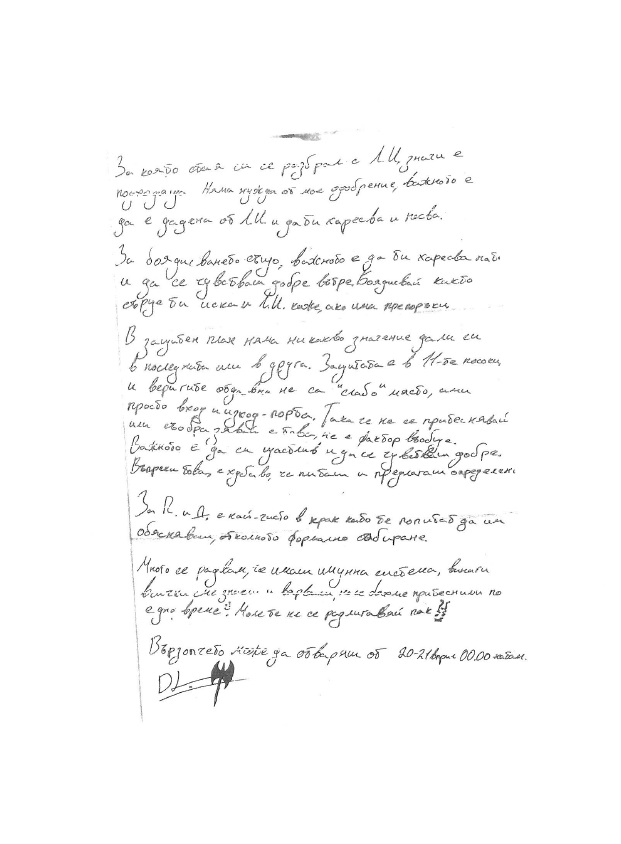 За която стая си се разбрал с Л.И, значи е
подходяща. Няма нужда от мое одобрение, важното е
да е дадена от Л.И. и да ти харесва и пасва.
За боядисването също, важното е да ти харесва
и да се чувстваш добре вътре. Боядисвай както
ти иска и Л.И. каже, ако има препоръки.
В защитен план няма никакво значение дали си
в последната или в друга. Защитата е в 11-те
и веригите са "слабо" място, ами
просто вход и изход - порта. Така че не се притеснявай
или съобразявай с това, не е фактор въобще.
Важното е да си щастлив и да се чувстваш добре.
Въпреки това, е хубаво, че питаш и предлагаш определени
За П. и Д. е най-чисто в крак като те попитат да им
обясняваш, отколкото формално събиране.
Много се радвам, че имаш имунна система, винаги
всички сме знаели и вярвали, но се бяхме притеснили по
едно време. Моля те не се разлигавай пак!!
може да отваряш от 20-21 април 00.00 нататък.
DL.